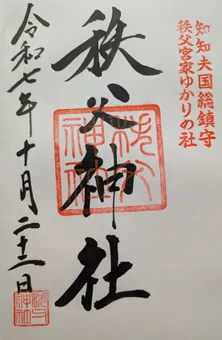 知知夫国総鎮守
秩父宮家ゆかりの社
秩父神社
秩父神社
令和七年十月二十二日